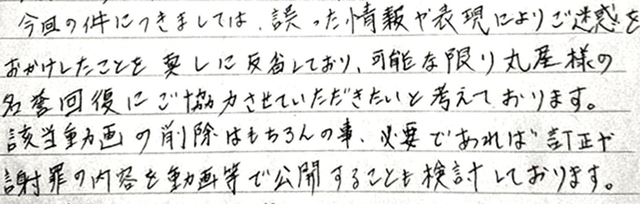 今回の件につきましては、誤った情報や表現によりご迷惑を
おかけしたことを真しに反省しており、可能な限り丸屋様の
名誉回復にご協力させていただきたいと考えております。
該当動画の削除はもちろんの事、必要であれば訂正や
謝罪の内容を動画等で公開することも検討しております。